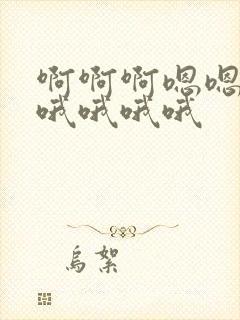 啊啊啊嗯嗯
哦哦哦哦
乌絮